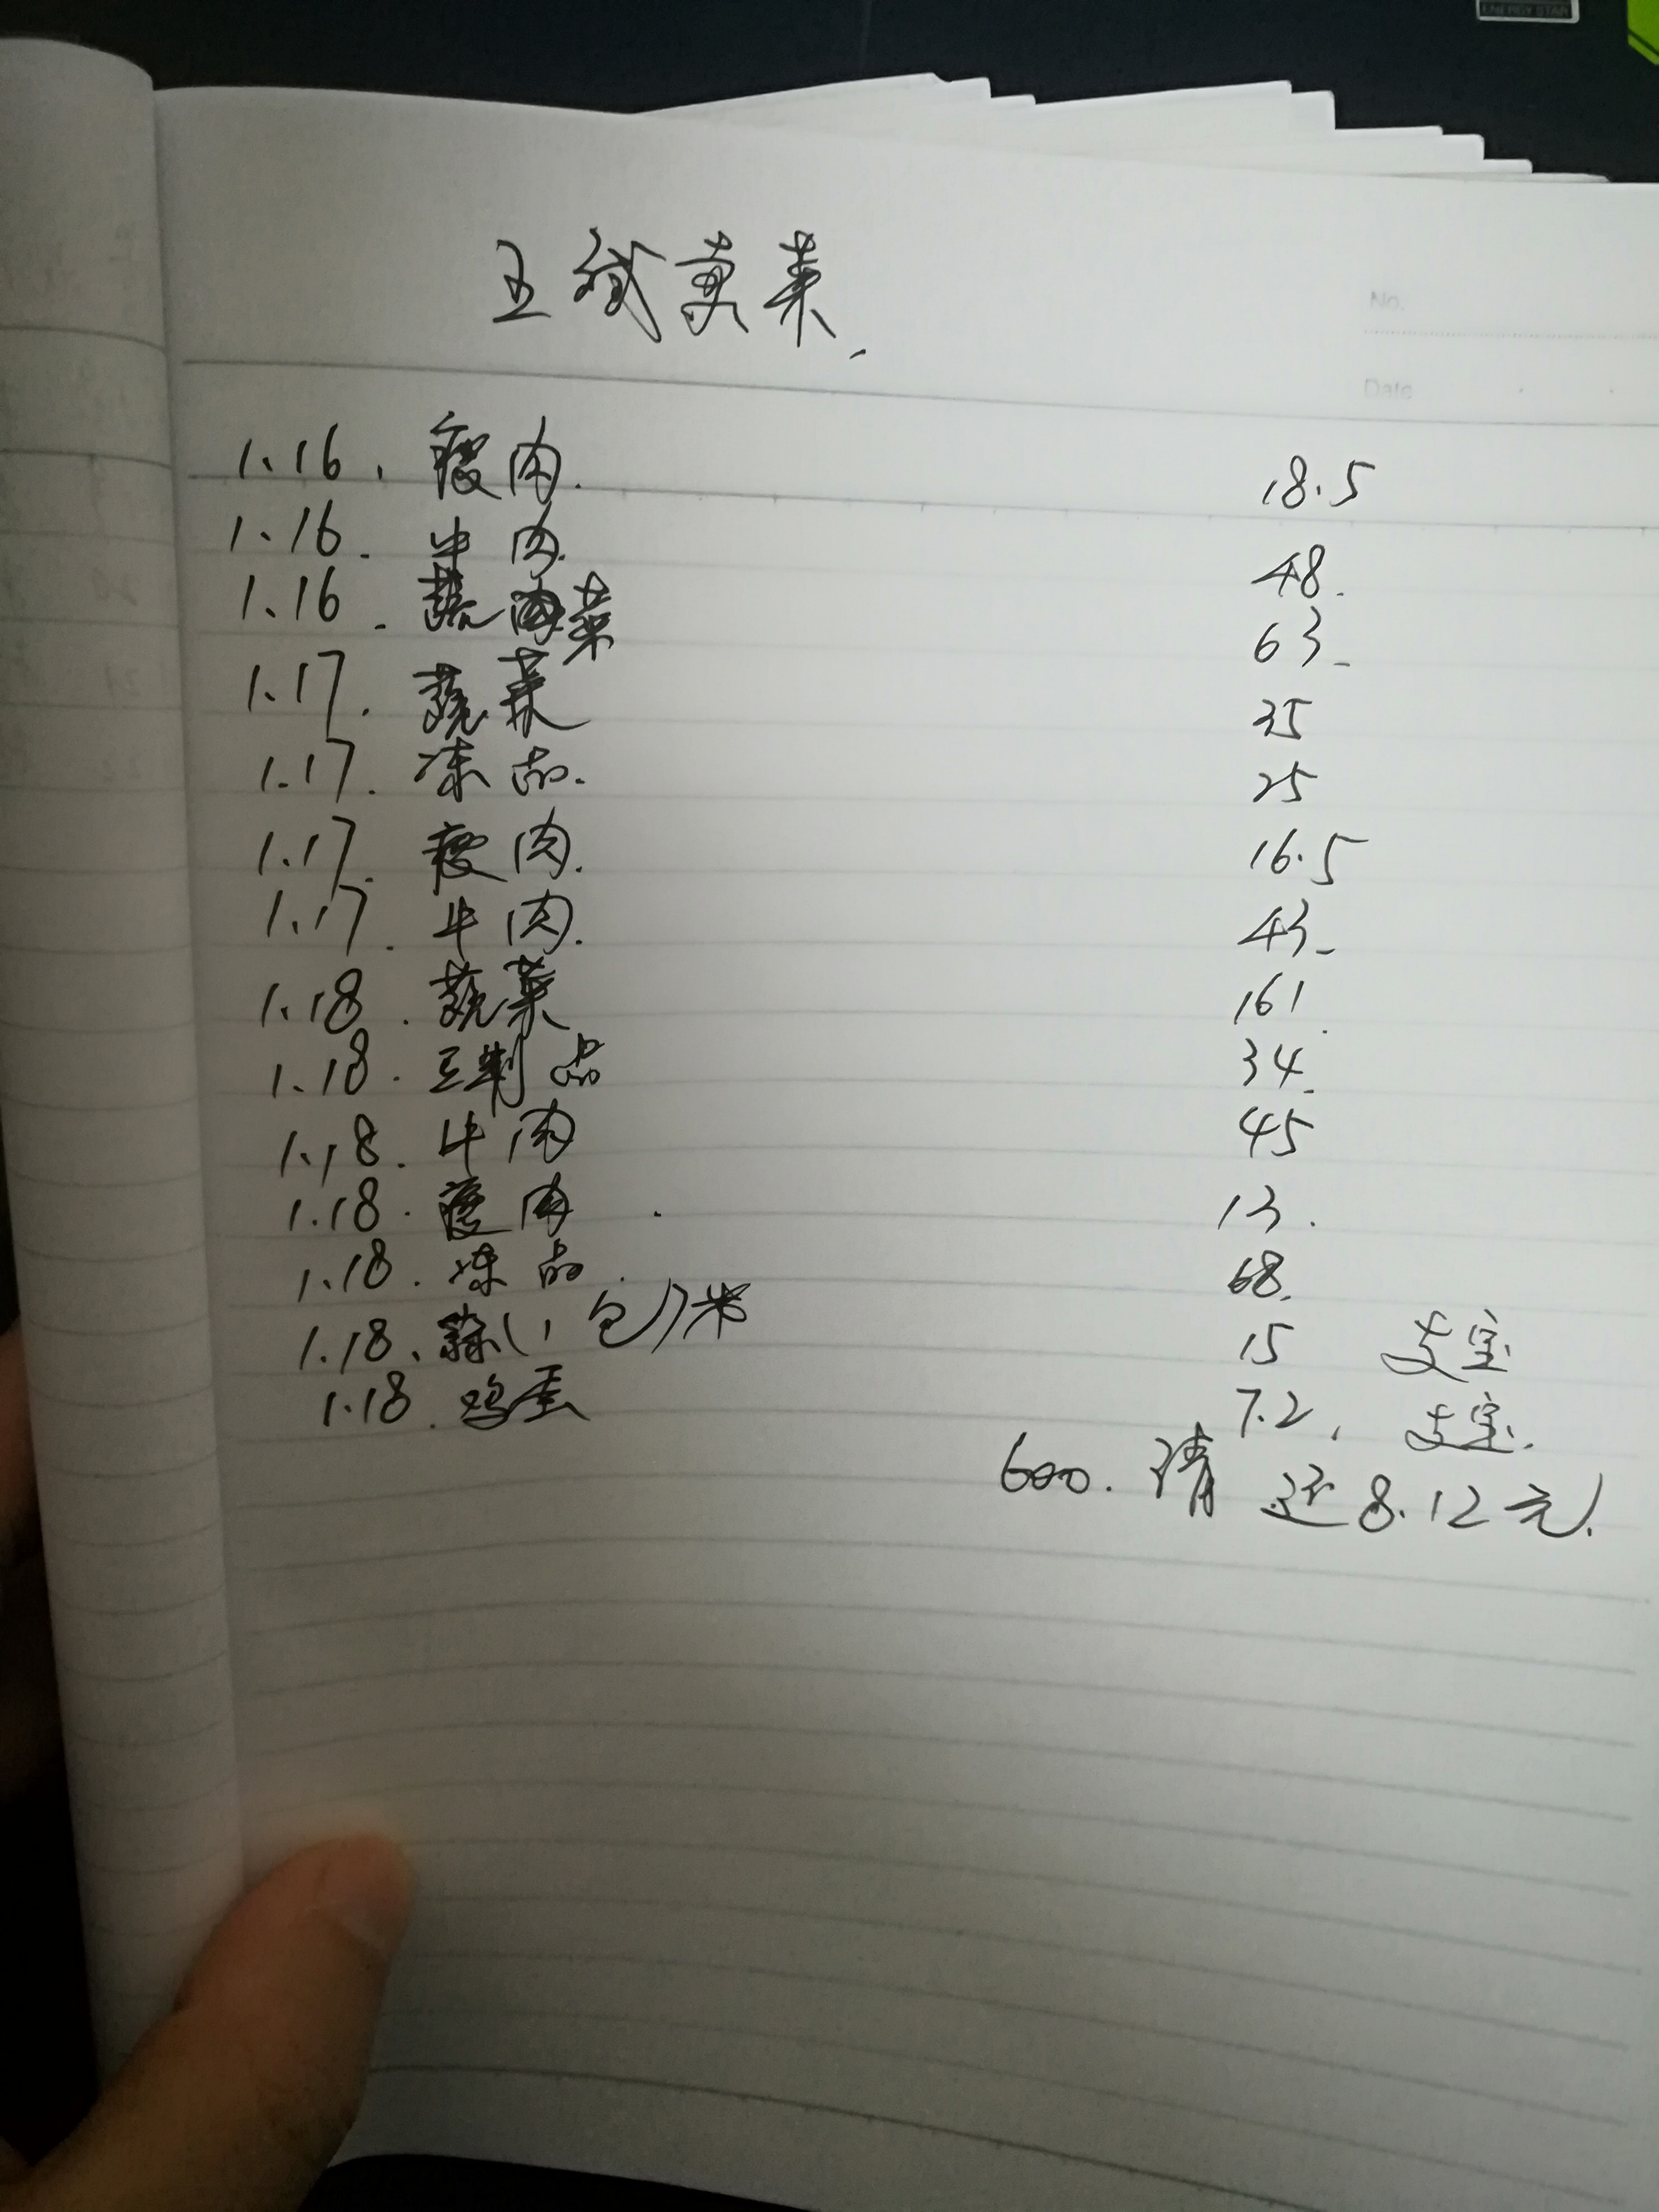 ENERGY STAR
卖菜.
No.
Date
1.16. 瘦肉. 18.5
1.16. 牛肉. 48.
1.16. 蔬菜 63.
1.17. 蔬菜 35
1.17. 冻品. 25
1.17. 瘦肉. 16.5
1.17. 牛肉. 43.
1.18. 蔬菜 161.
1.18. 豆制品 34.
1.18. 牛肉 45
1.18. 瘦肉. 13.
1.18. 冻品. 68.
1.18. 蒜(1包)米 15 支宝
1.18. 鸡蛋 7.2. 支宝.
600. 请还8.12元.